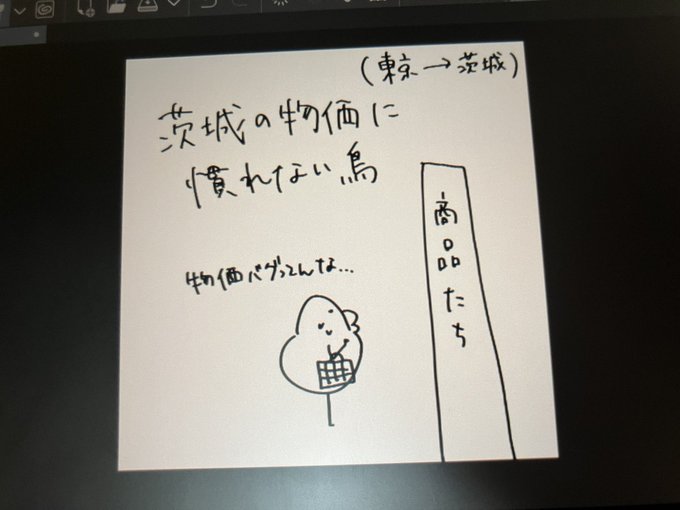 (東京→茨城)
茨城の物価に
慣れない鳥
物価バグってんな...
商品たち